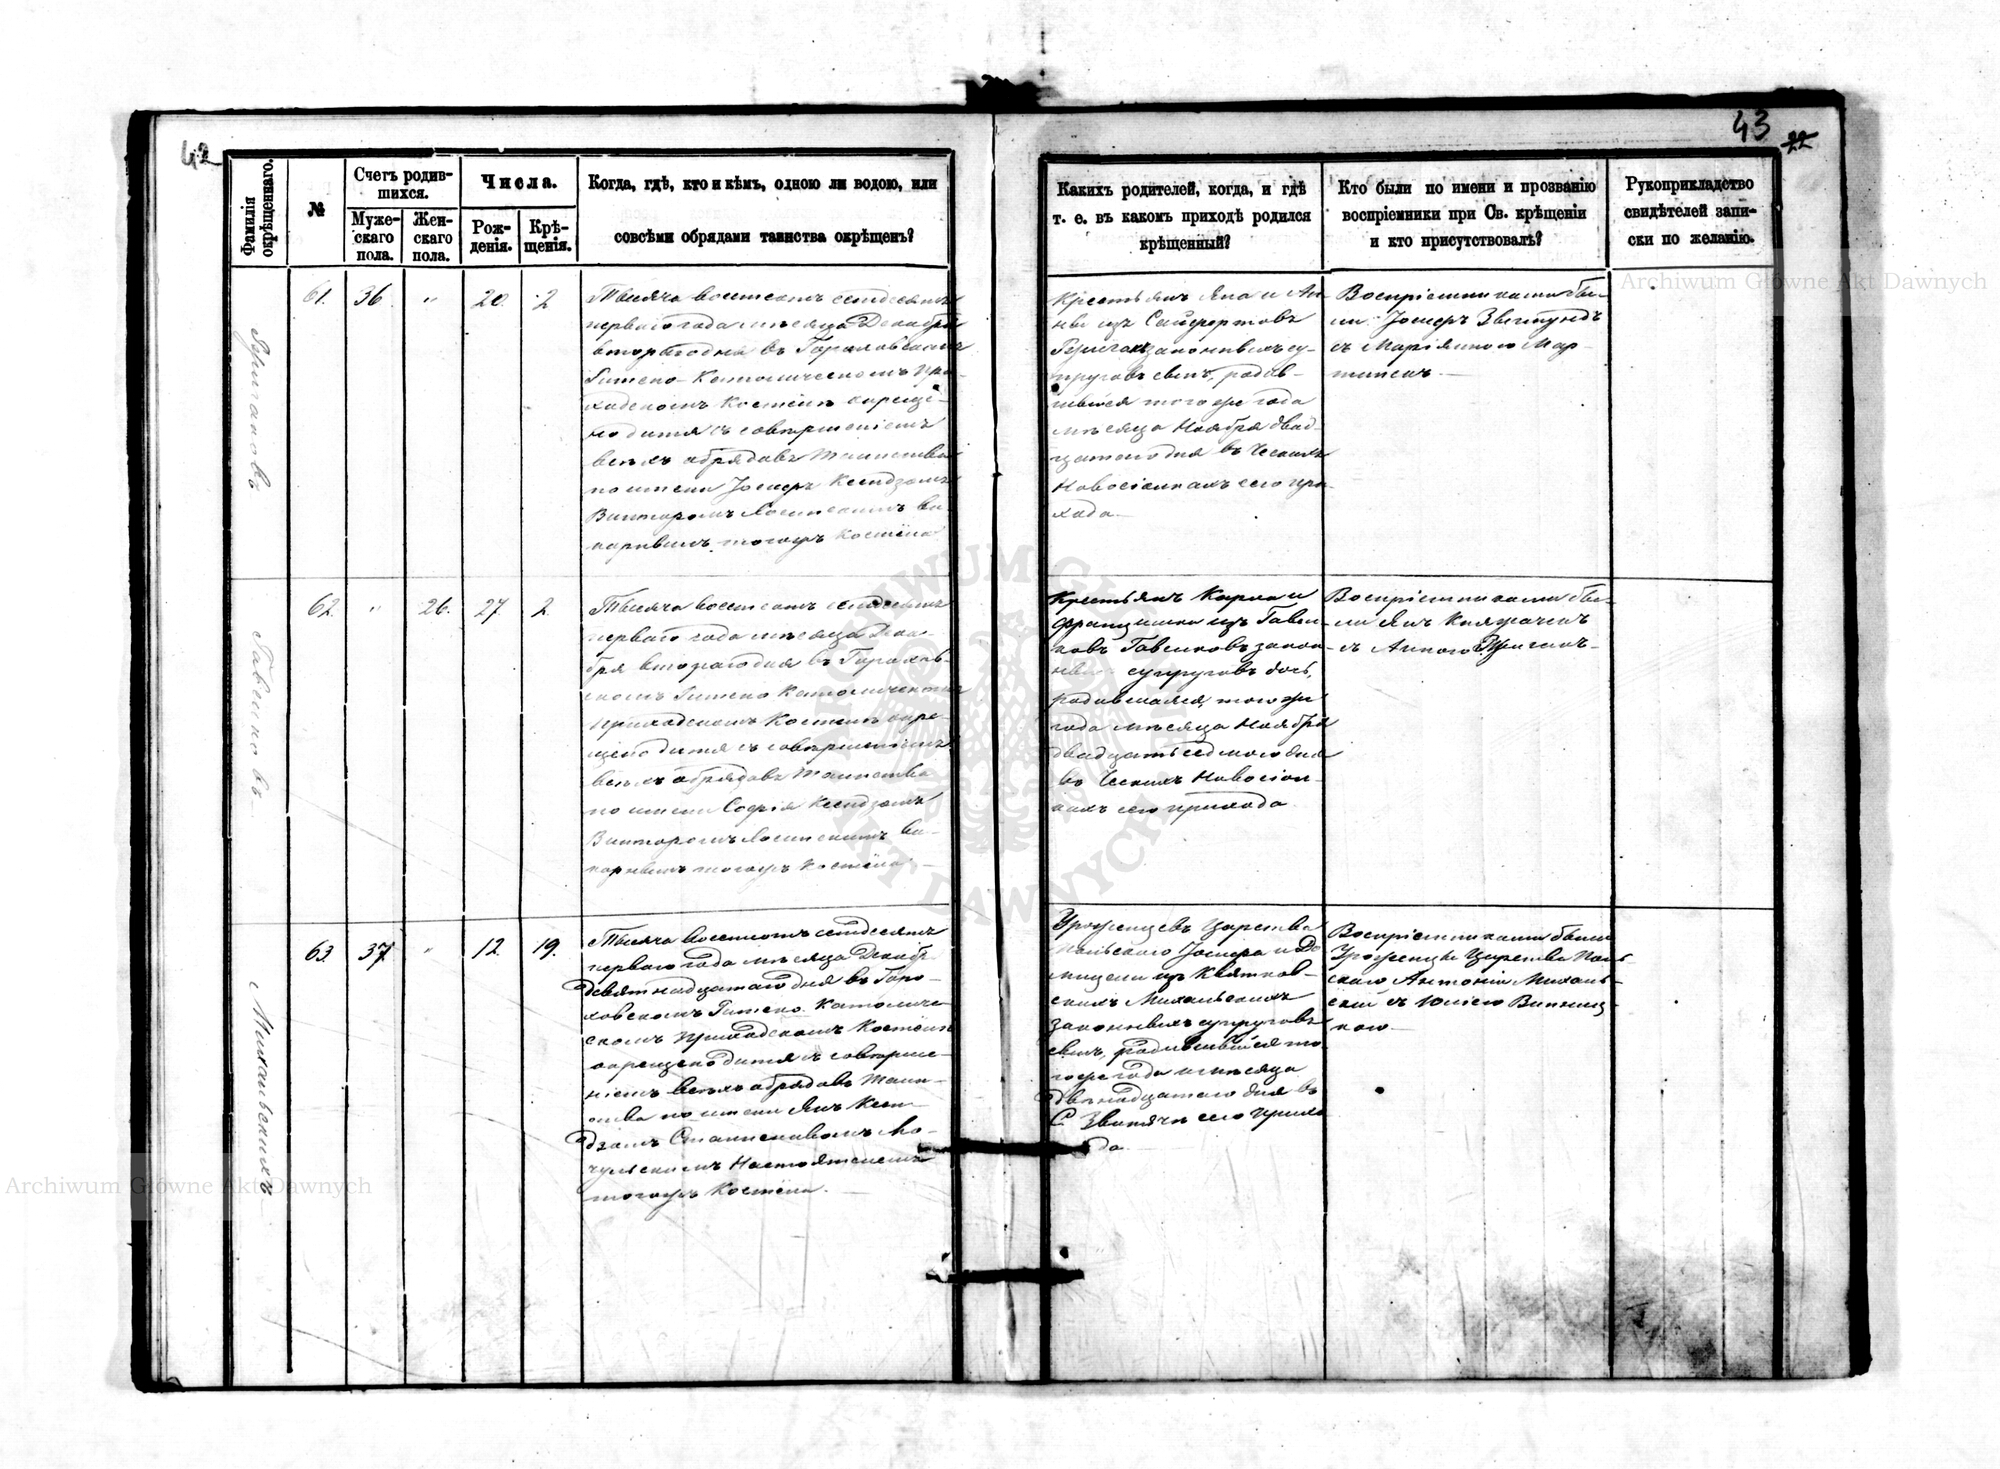 42
Фамилія окрѣщеннаго.
№
Счетъ родив-
шихся.
Муже-
скаго
пола.
Жен-
скаго
пола.
Числа.
Рож-
денія.
Крѣ-
щенія.
Когда, гдѣ, кто и кѣмъ, одною ли водою, или
совсѣми обрядами таинства окрѣщенъ?
61.
36.
"
20.
2
Тысяча восемсотъ семдесятъ
перваго года мѣсяца Декабря
втораго дня въ Гороховскомъ
Римско-Католическомъ при-
ходскомъ Костёлѣ окреще-
но дитя съ совершеніемъ
всѣхъ обрядовъ Таинства
по имени Іосифъ Ксендзомъ
Викторомъ
карнымъ тогожъ Костёла
62.
"
26.
27.
2.
Гавликовъ
Тысяча восемсотъ семдесятъ
перваго года мѣсяца Дека-
бря втораго дня въ Горохов-
скомъ Римско Католическомъ
Приходскомъ Костёлѣ окре-
щено дитя съ совершеніемъ
всѣхъ обрядовъ Таинства
по имени Софія Ксендзомъ
Викторомъ ви-
карнымъ тогожъ Костёла. –
63.
37.
"
12.
19.
Михальскихъ
Тысяча восемсотъ семдесятъ
перваго года мѣсяца Декабр.
девятнадцатаго дня въ Горо-
ховскомъ Римско Католиче-
скомъ Приходскомъ Костёлѣ
окрещено дитя съ соверше-
ніемъ всѣхъ обрядовъ Таин-
ства по имени Янъ Ксен-
дзомъ Станиславомъ Мо-
чульскимъ Настоятелемъ
тогожъ Костёла. –
43
Какихъ родителей, когда, и гдѣ
т. е. въ какомъ приходѣ родился
крѣщенный?
Кто были по имени и прозванію
воспріемники при Св. крѣщеніи
и кто присутствовалъ?
Рукоприкладство
свидѣтелей запи-
ски по желанію.
Крестьянъ Яна и Ан-
ны изъ
законныхъ су-
пруговъ сынъ, родив-
шійся того же года
мѣсяца Ноября двад-
цатаго дня въ Ческихъ
Новосіолкахъ сего при-
хода. –
Воспріемниками бы-
ли: Іосифъ
съ Маріянною Мар-
Крестьянъ Карла и
Францишки изъ Гавли-
ковъ Гавликовъ закон-
ны- супруговъ дочь,
родившаяся того же
года мѣсяца Ноября
двадцать седмого дня
въ Ческихъ Новосіол-
кахъ сего прихода.
Воспріемниками бы-
ли Янъ
съ Анною
Уроженцевъ Царства
Польскаго Іосифа и До-
мицели изъ Квятков-
скихъ Михальскихъ
законныхъ супруговъ
сынъ, родившійся то-
гоже года и мѣсяца
двѣнадцатаго дня въ
С. Звинячѣ сего прихо-
да. –
Воспріемниками были
Уроженцы Царства Поль-
скаго Антоній Михаль-
скій съ Юліею Винниц-
кою. –
Archiwum Główne Akt Dawnych
Archiwum Główne Akt Dawnych
ARCHIWUM GŁÓWNE AKT DAWNYCH